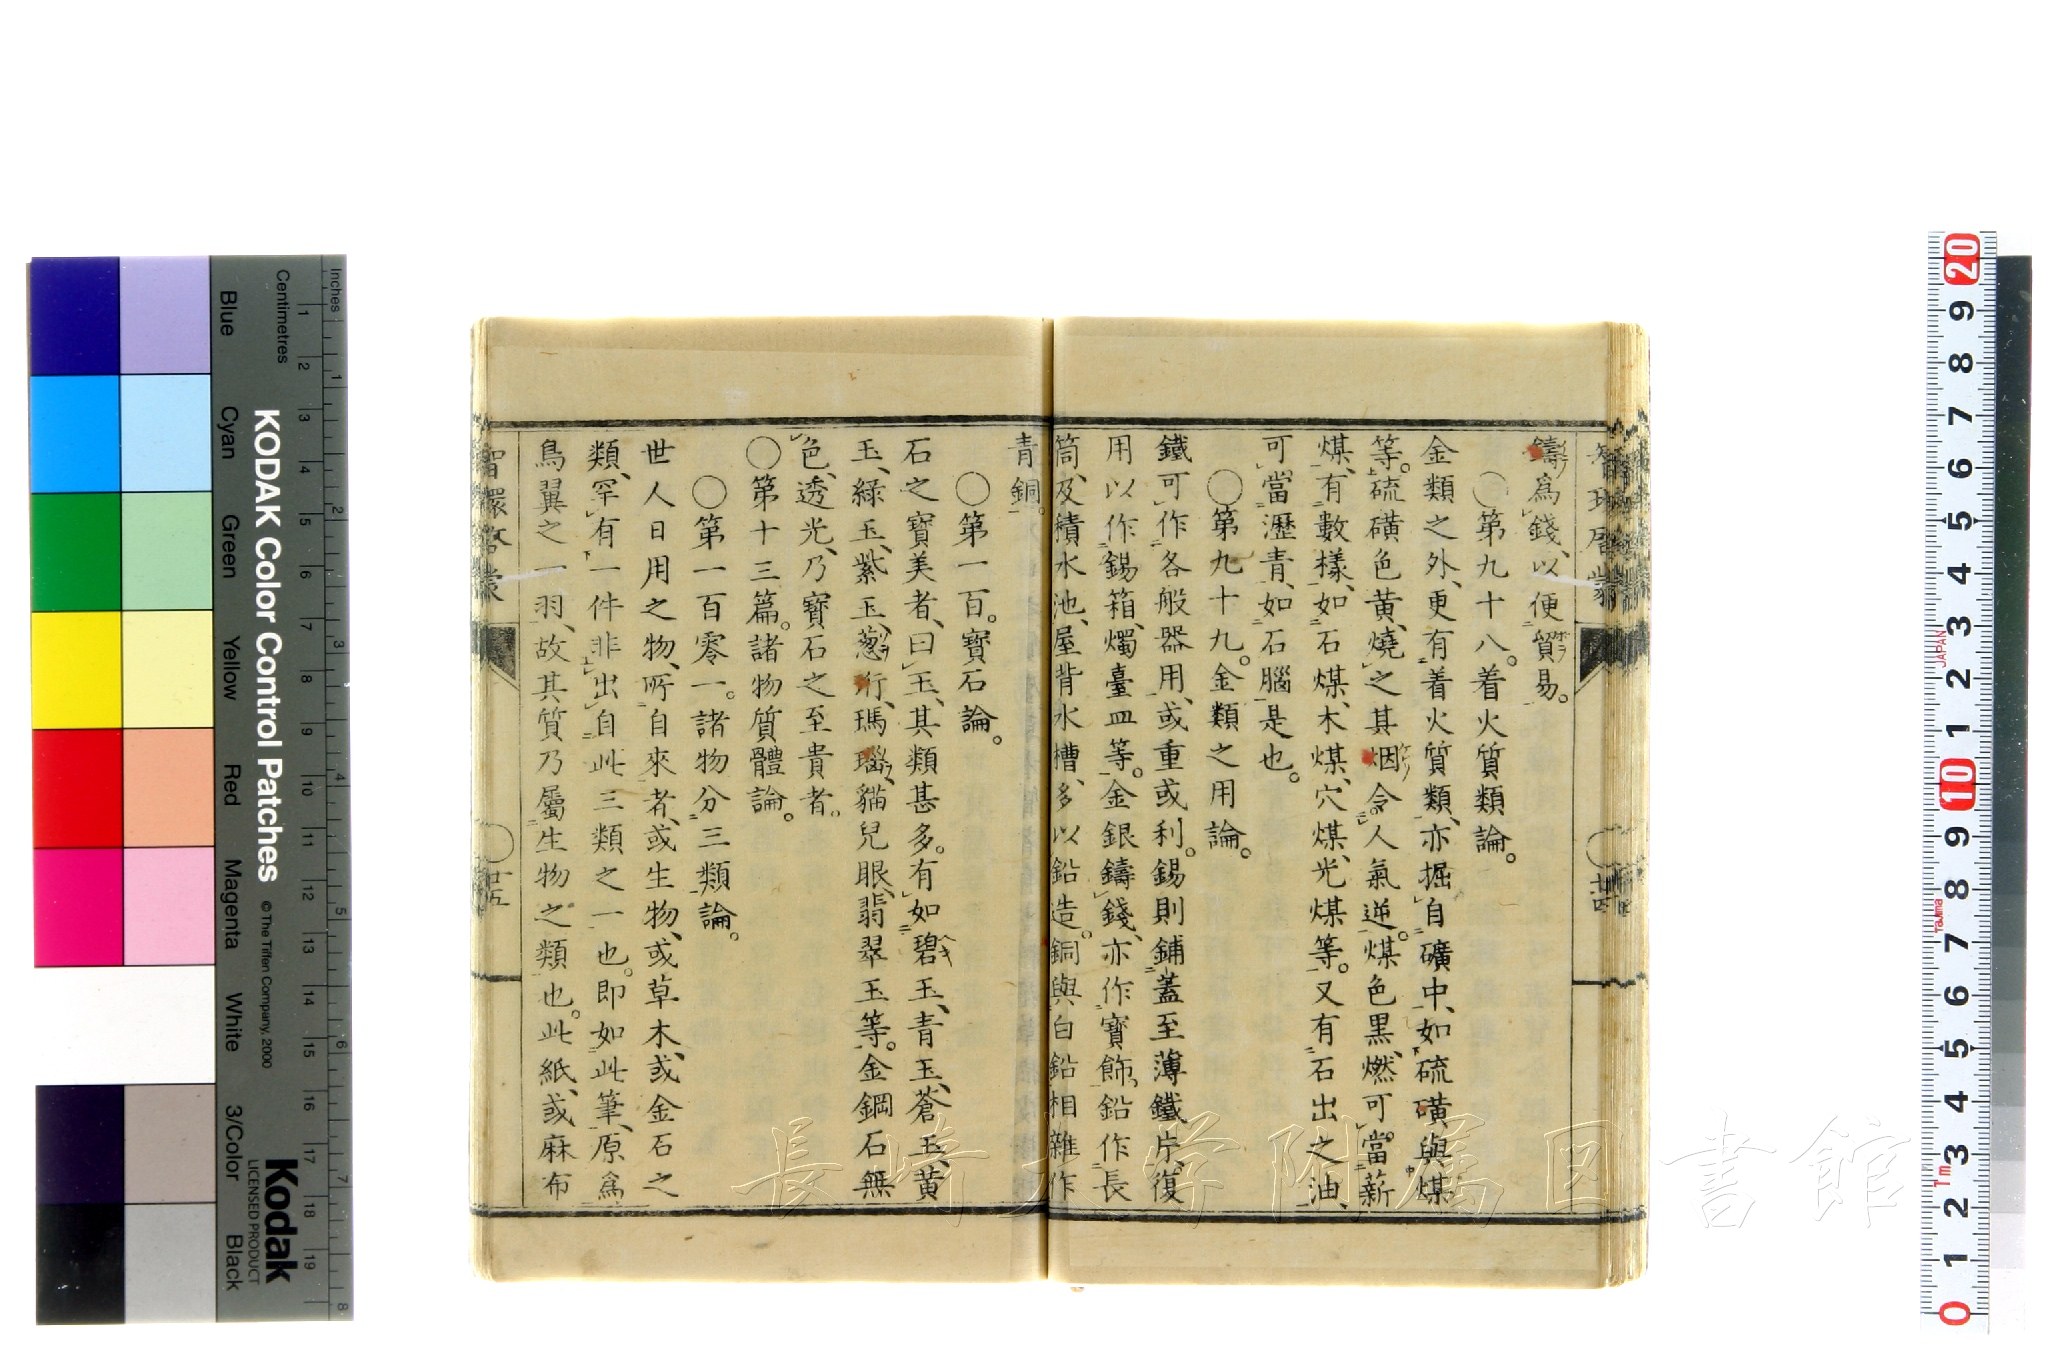 鑄爲錢、以便貿易。
○第九十八。着火質類論。
金類之外、更有着火質類、亦掘自礦中、如硫磺與煤
等。硫磺色黄、燒之其烟令人氣逆。煤色黑、燃可當薪
煤、有數樣、如石煤、木煤、穴煤、光煤等。又有石出之油、
可當瀝青、如石腦是也。
○第九十九。金類之用論。
鐵可作各般器用、或重或利。錫則鋪蓋至薄鐵片、復
用以作錫箱、燭臺皿等。金銀鑄錢、亦作寶飾。鉛作長
筒、及積水池、屋背水槽、多以鉛造。銅與白鉛相雜作
青銅。
○第一百。寶石論。
石之寶美者、曰玉、其類甚多。有如碧玉、青玉、蒼玉、黄
玉、綠玉、紫玉、蔥珩、瑪瑙、貓兒眼、翡翠玉等。金鋼石無
色、透光、乃寶石之至貴者。
○第十三篇。諸物質體論。
○第一百零一。諸物分三類論。
世人日用之物、所自來者、或生物、或草木、或金石之
類、罕有一件非出自此三類之一也。即如此筆、原爲
鳥翼之一羽、故其質乃屬生物之類也。此紙、或麻布
智環啓蒙
廿四
智環啓蒙
廿五
長崎大学附属図書館
KODAK Color Control Patches
© The Tiffen Company, 2000
Kodak
LICENSED PRODUCT
Inches
Centimetres
Blue
Cyan
Green
Yellow
Red
Magenta
White
3/Color
Black
1 2 3 4 5 6 7 8 9 10 11 12 13 14 15 16 17 18 19
1 2 3 4 5 6 7 8
20 9 8 7 6 5 4 3 2 1 10 9 8 7 6 5 4 3 2 1 0
JAPAN
Tajima
Tm